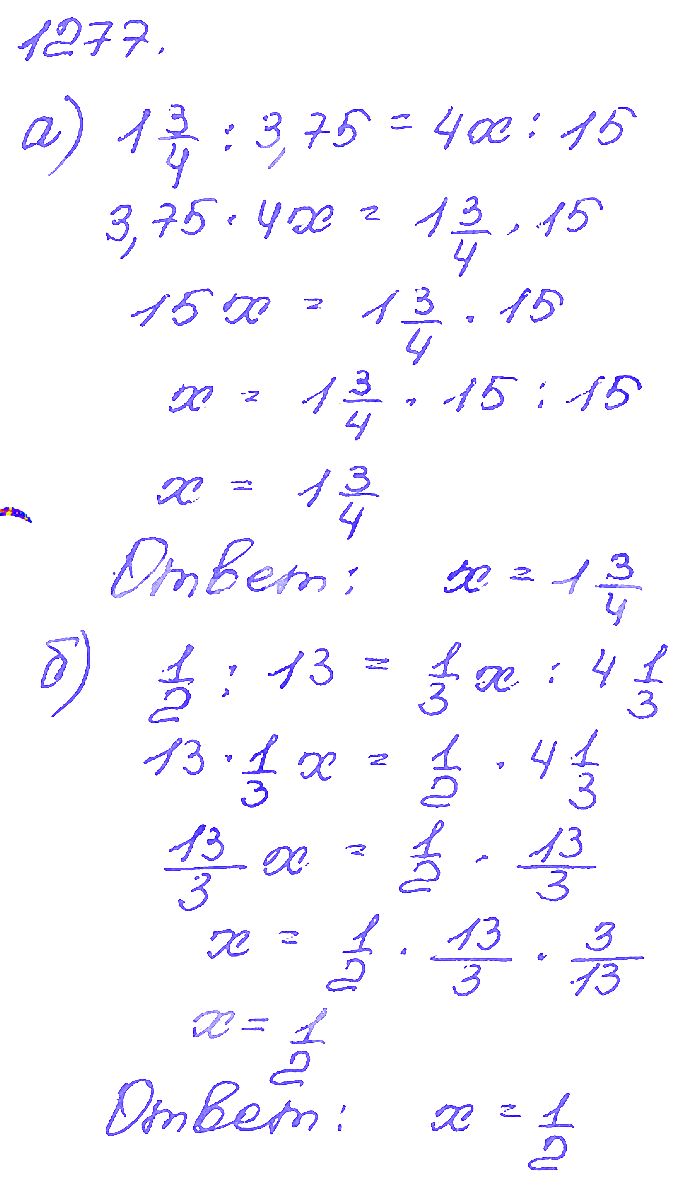 1277.
а) 1 3/4 : 3,75 = 4x : 15
3,75 · 4x = 1 3/4 · 15
15x = 1 3/4 · 15
x = 1 3/4 · 15 : 15
x = 1 3/4
Ответ: x = 1 3/4
б) 1/2 : 13 = 1/3 x : 4 1/3
13 · 1/3 x = 1/2 · 4 1/3
13/3 x = 1/2 · 13/3
x = 1/2 · 13/3 · 3/13
x = 1/2
Ответ: x = 1/2